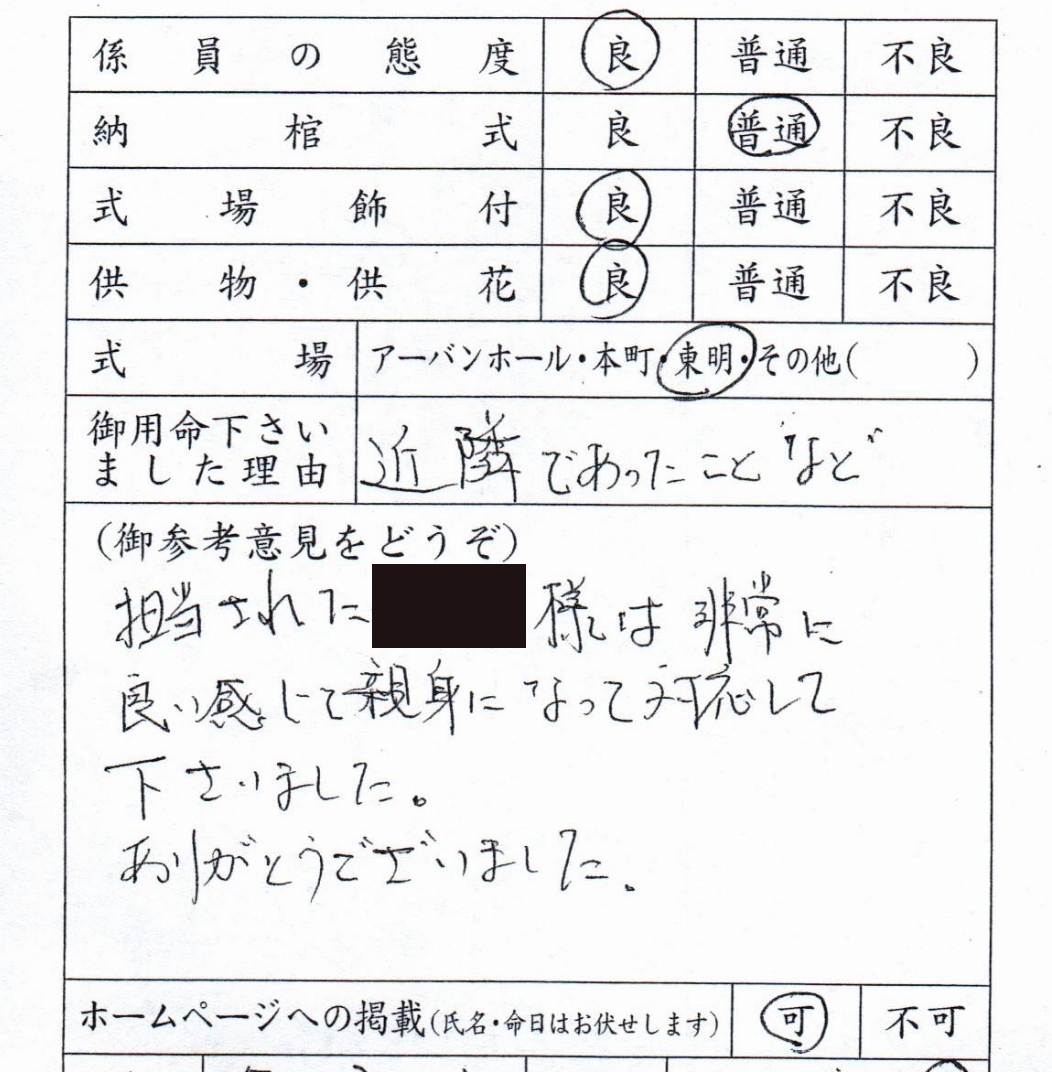 係員の態度 良 普通 不良
納棺式 良 普通 不良
式場飾付 良 普通 不良
供物・供花 良 普通 不良
式場 アーバンホール・本町・東明・その他( )
御用命下さい
ました理由
近隣であったことなど
(御参考意見をどうぞ)
担当された 様は非常に
良い感じで親身になって対応して
下さいました。
ありがとうございました。
ホームページへの掲載(氏名・命日はお伏せします) 可 不可